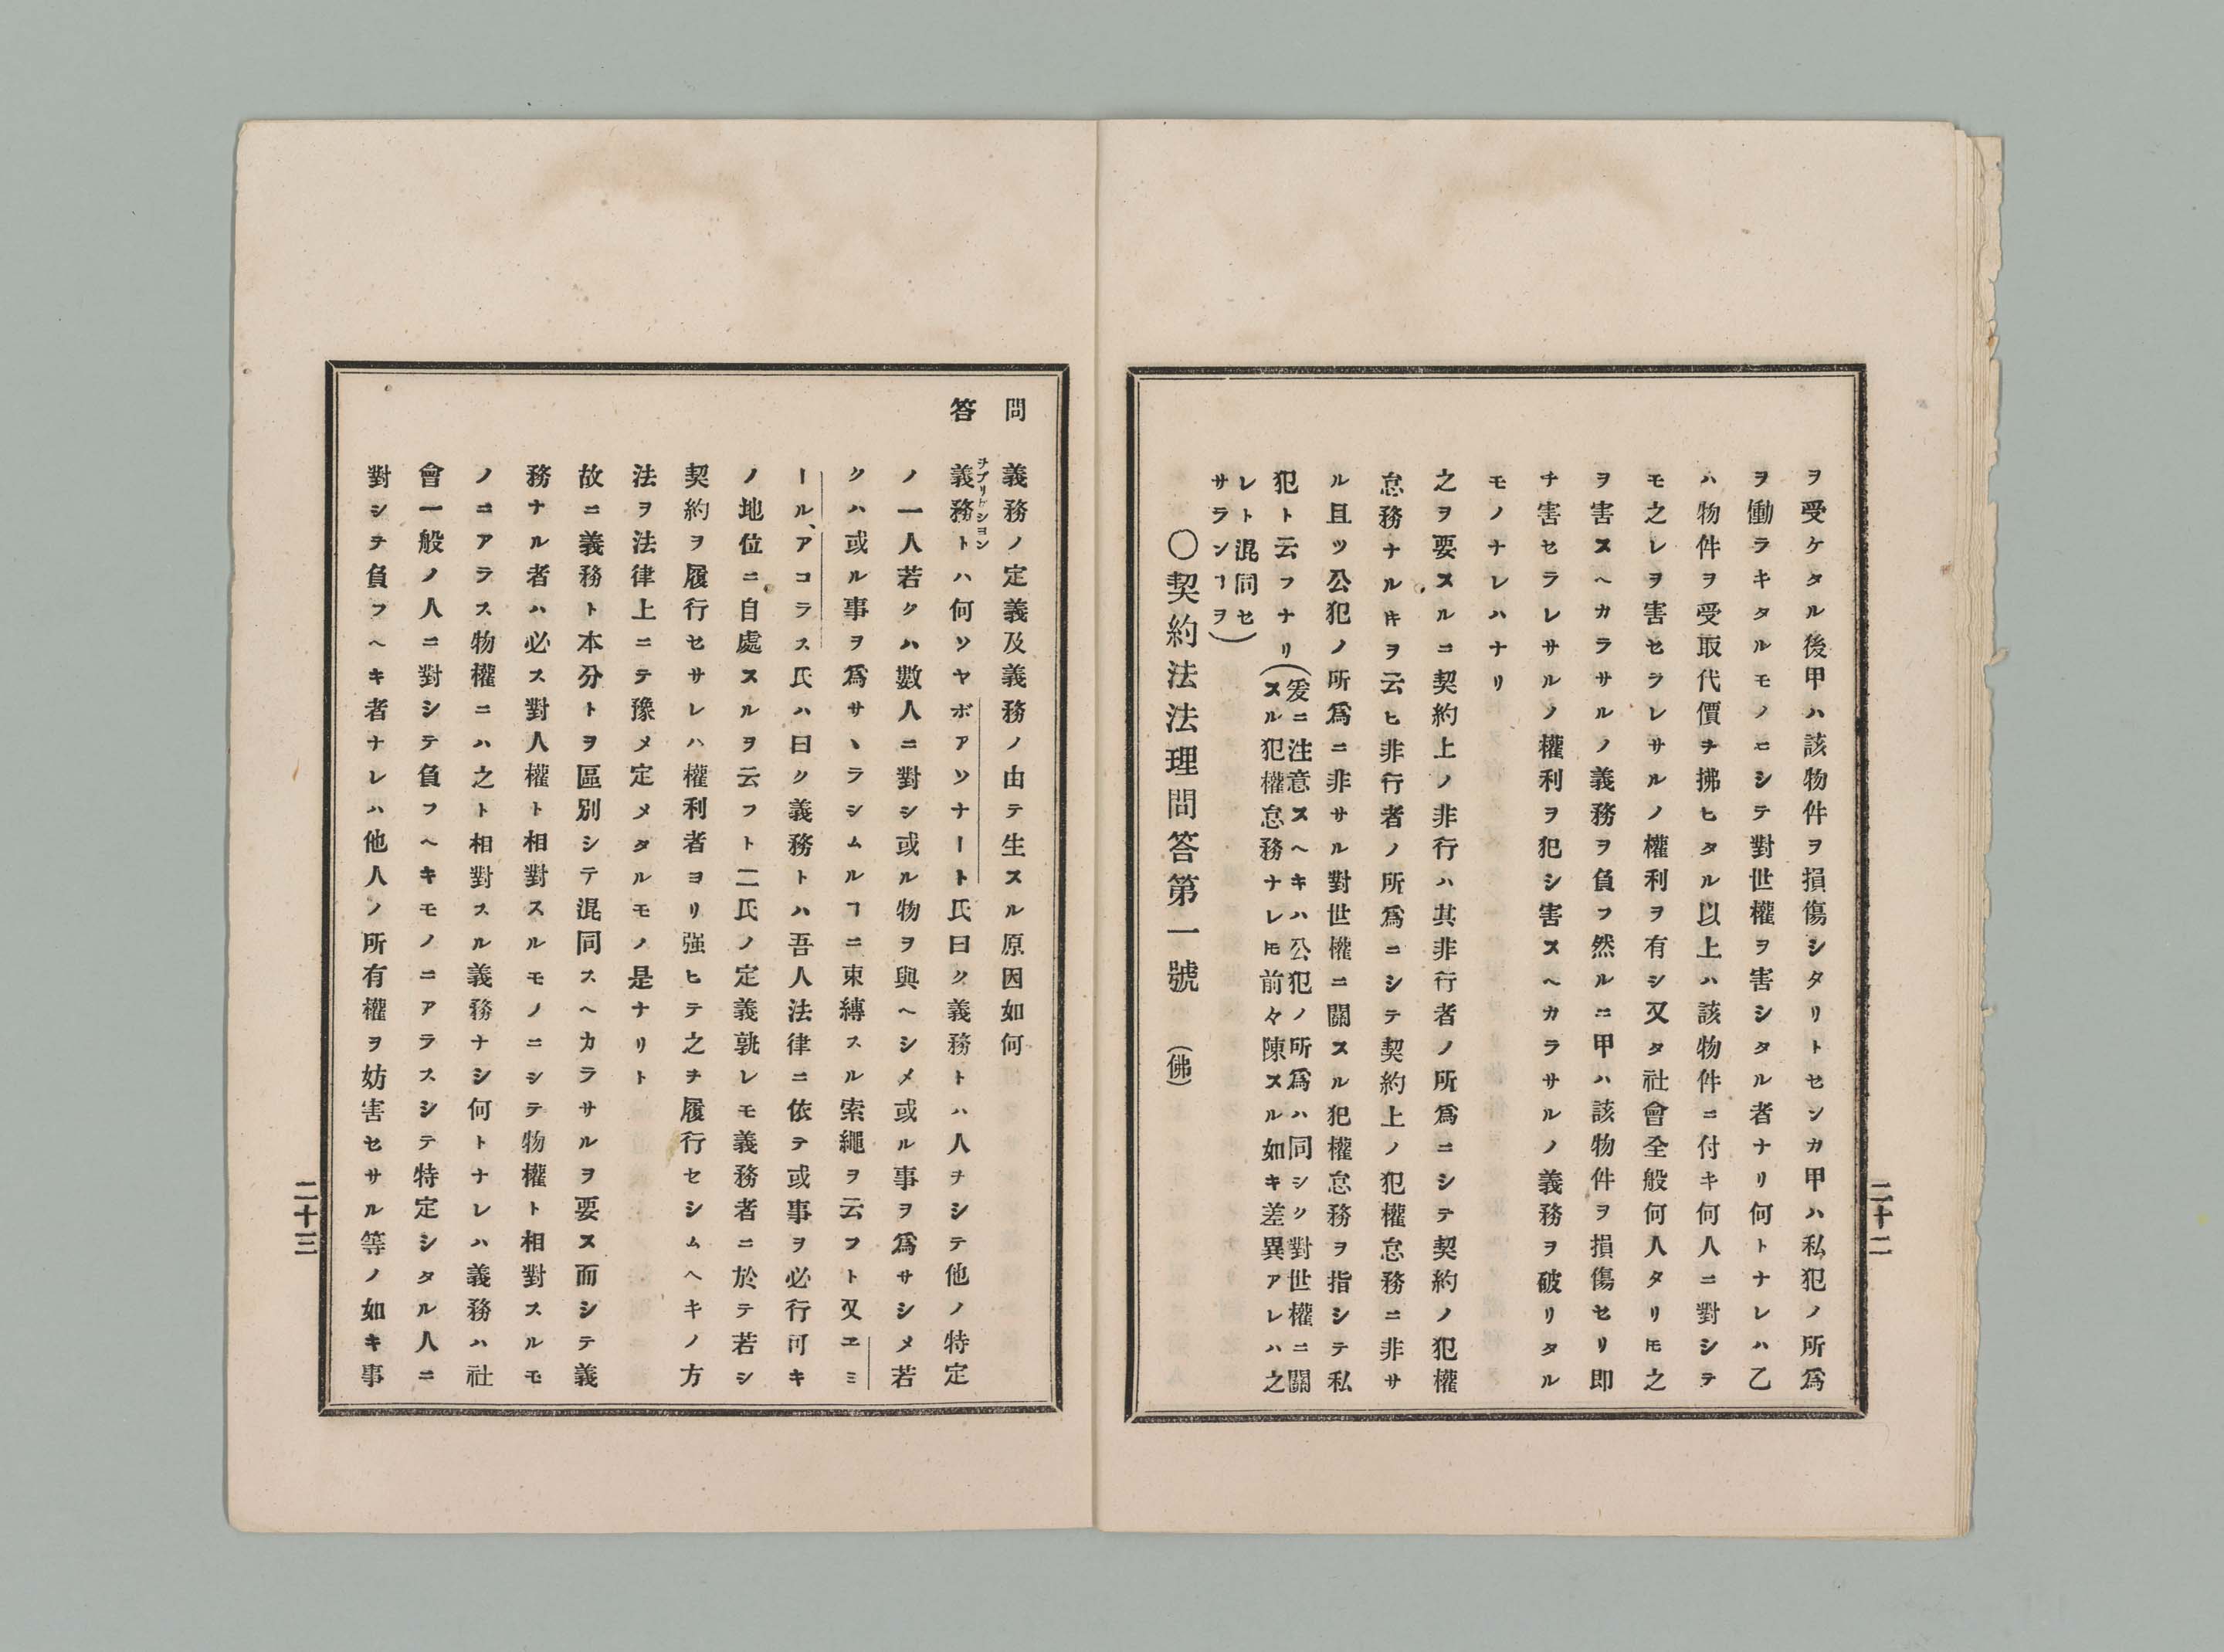 ヲ受ケタル後甲ハ該物件ヲ損傷シタリトセンカ甲ハ私犯ノ所爲
ヲ働ラキタルモノニシテ對世權ヲ害シタル者ナリ何トナレハ乙
ハ物件ヲ受取代價ヲ拂ヒタル以上ハ該物件ニ付キ何人ニ對シテ
モ之レヲ害セラレサルノ權利ヲ有シ又タ社會全般何人タリㇳモ之
ヲ害スヘカラサルノ義務ヲ負フ然ルニ甲ハ該物件ヲ損傷セリ即
チ害セラレサルノ權利ヲ犯シ害スヘカラサルノ義務ヲ破リタル
モノナレハナリ
之ヲ要スルニ契約上ノ非行ハ其非行者ノ所爲ニシテ契約ノ犯權
怠務ナルヰヲ云ヒ非行者ノ所爲ニシテ契約上ノ犯權怠務ニ非サ
ル且ツ公犯ノ所爲ニ非サル對世權ニ關スル犯權怠務ヲ指シテ私
犯ト云フナリ(爰ニ注意スヘキハ公犯ノ所爲ハ同シク對世權ニ關
スル犯權怠務ナレㇳモ前々陳スル如キ差異アレハ之
レト混同セ
サランヿヲ)
〇契約法法理問答第一號 (佛)
二十二
問 義務ノ定義及義務ノ由テ生スル原因如何
答 義務トハ何ソヤボアソナート氏曰ク義務トハ人ヲシテ他ノ特定
ヲブリゲシヨン
ノ一人若クハ數人ニ對シ或ル物ヲ與ヘシメ或ル事ヲ爲サシメ若
クハ或ル事ヲ爲サヽラシムルヿニ束縛スル索繩ヲ云フト又エミ
ール、アコラス氏ハ曰ク義務トハ吾人法律ニ依テ或事ヲ必行可キ
ノ地位ニ自處スルヲ云フト二氏ノ定義孰レモ義務者ニ於テ若シ
契約ヲ履行セサレハ權利者ヨリ强ヒテ之ヲ履行セシムヘキノ方
法ヲ法律上ニテ豫メ定メタルモノ是ナリト
故ニ義務ト本分トヲ區別シテ混同スヘカラサルヲ要ス而シテ義
務ナル者ハ必ス對人權ト相對スルモノニシテ物權ト相對スルモ
ノニアラス物權ニハ之ト相對スル義務ナシ何トナレハ義務ハ社
會一般ノ人ニ對シテ負フヘキモノニアラスシテ特定シタル人ニ
對シテ負フヘキ者ナレハ他人ノ所有權ヲ妨害セサル等ノ如キ事
二十三